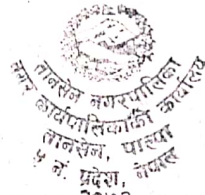 तानसेन नगरपालिका
नगर कार्यपालिकाको कार्यालय
तानसेन, पाल्पा
५ नं. प्रदेश, नेपाल